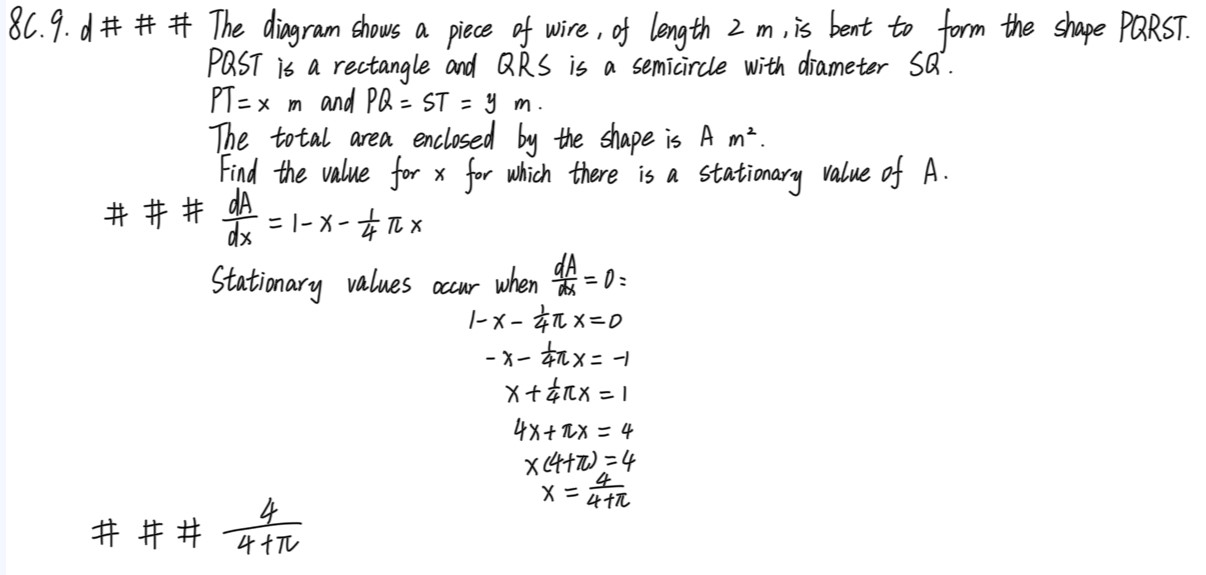 8C.9.d# # # The diagram shows a piece of wire, of length 2 m, is bent to form the shape PQRST.
PQST is a rectangle and QRS is a semicircle with diameter SQ.
PT = x m and PQ = ST = y m.
The total area enclosed by the shape is A m².
Find the value for x for which there is a stationary value of A.
# # # dA/dx = 1 - x - 1/4 π x
Stationary values occur when dA/dx = 0:
1 - x - 1/4 π x = 0
- x - 1/4 π x = -1
x + 1/4 π x = 1
4x + πx = 4
x(4+π) = 4
x = 4/(4+π)
# # # 4/(4+π)